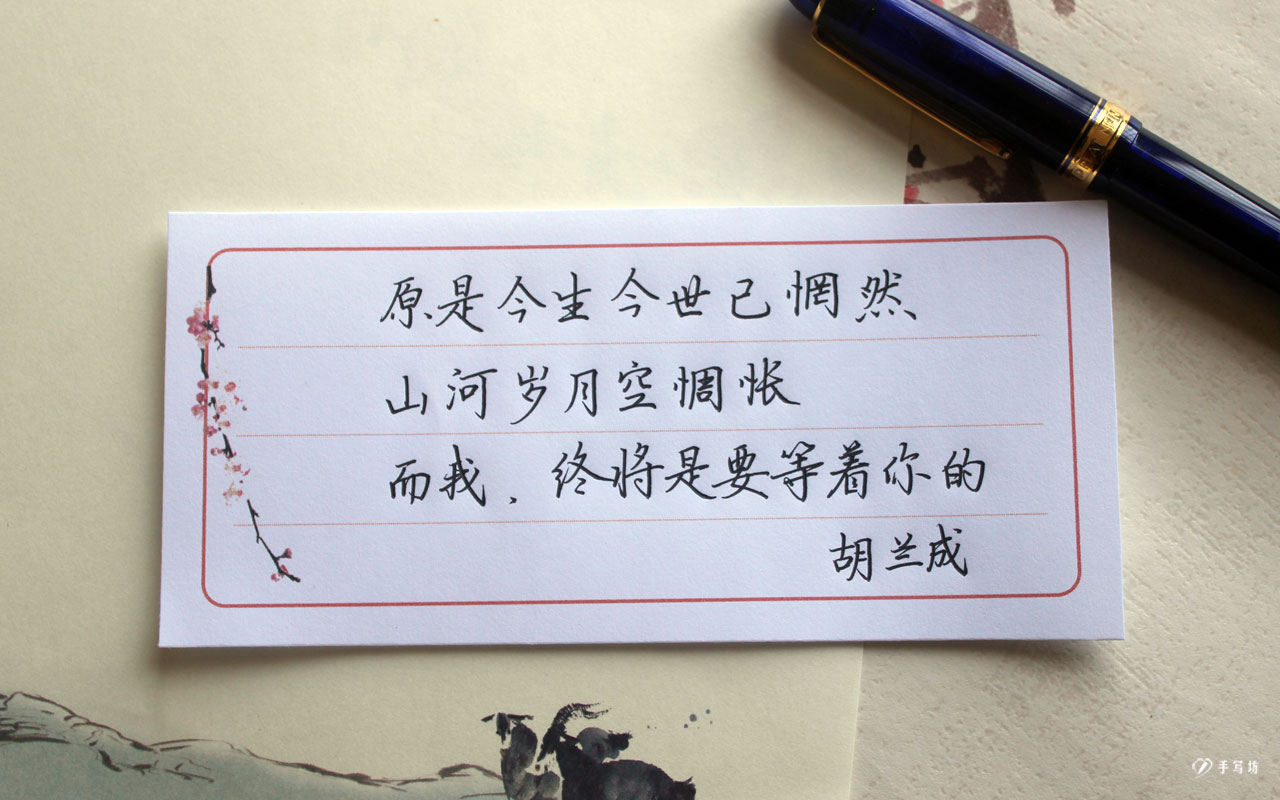 原是今生今世已惘然
山河岁月空惆怅
而我，终将是要等着你的
胡兰成
手写坊